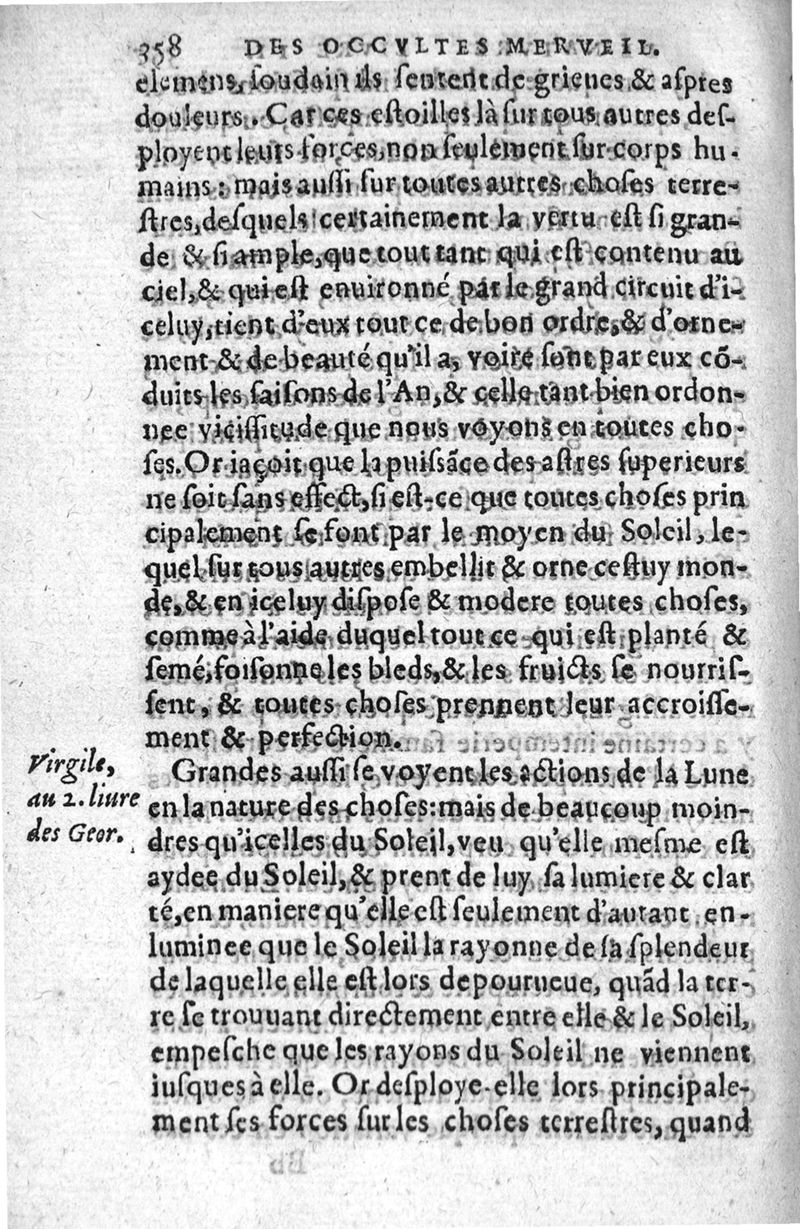 358 DES OCCVLTES MERVEIL.
elemens, ſoudain ils ſentent de grieues & aſpres
douleurs. Car ces eſtoilles là ſur tous autres deſ-
ployent leurs forces, non ſeulement ſur corps hu-
mains: mais auſſi ſur toutes autres choſes terre-
ſtres, deſquels certainement la vertu eſt ſi gran-
de & ſi ample, que tout tant qui eſt contenu au
ciel, & qui eſt enuironné par le grand circuit d'i-
celuy, tient d'eux tout ce de bon ordre, & d'orne-
ment & de beauté qu'il a, voire ſont par eux cō-
duits les ſaiſons de l'An, & celle tant bien ordon-
nee viciſſitude que nous voyons en toutes cho-
ſes. Or iaçoit que la puiſsāce des aſtres ſuperieurs
ne ſoit ſans effect, ſi eſt-ce que toutes choſes prin
cipalement ſe font par le moyen du Soleil, le-
quel ſur tous autres embellit & orne ceſtuy mon-
de, & en iceluy diſpoſe & modere toutes choſes,
comme à l'aide duquel tout ce qui eſt planté &
ſemé, foiſonne les bleds, & les fruicts ſe nourriſ-
ſent, & toutes choſes prennent leur accroiſſe-
ment & perfection.
Virgile,
au 2. liure
des Geor.
Grandes auſſi ſe voyent les actions de la Lune
en la nature des choſes: mais de beaucoup moin-
dres qu'icelles du Soleil, veu qu'elle meſme eſt
aydee du Soleil, & prent de luy ſa lumiere & clar
té, en maniere qu'elle eſt ſeulement d'autant en-
luminee que le Soleil la rayonne de ſa ſplendeur
de laquelle elle eſt lors depourueue, quād la ter-
re ſe trouuant directement entre elle & le Soleil,
empeſche que les rayons du Soleil ne viennent
iuſques à elle. Or deſploye-elle lors principale-
ment ſes forces ſur les choſes terreſtres, quand